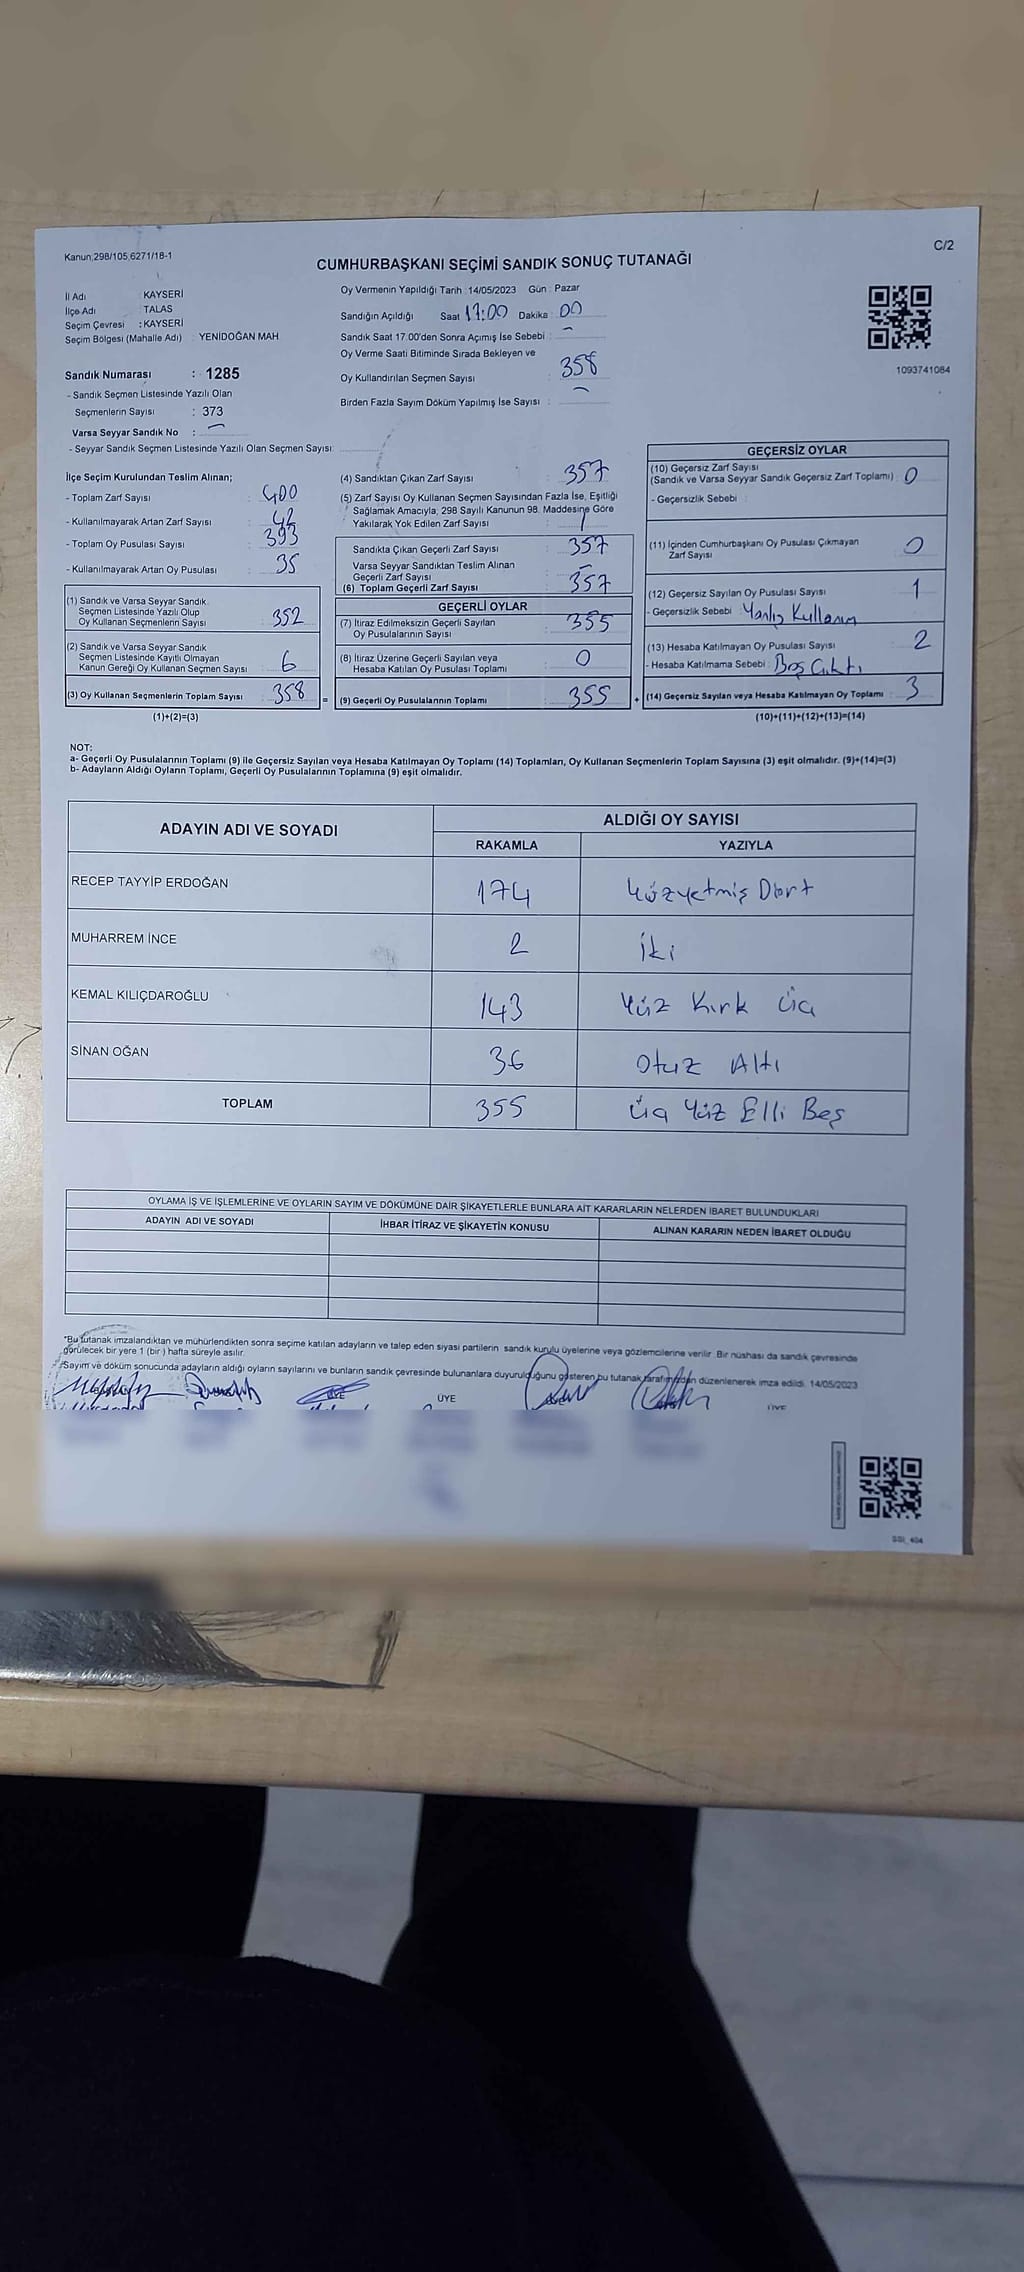 Kanun,298/105,6271/18-1
C/2
CUMHURBAŞKANI SEÇİMİ SANDIK SONUÇ TUTANAĞI
İl Adı : KAYSERİ
İlçe Adı : TALAS
Seçim Çevresi : KAYSERİ
Seçim Bölgesi (Mahalle Adı) : YENİDOĞAN MAH
Sandık Numarası : 1285
- Sandık Seçmen Listesinde Yazılı Olan
Seçmenlerin Sayısı : 373
Varsa Seyyar Sandık No : -
- Seyyar Sandık Seçmen Listesinde Yazılı Olan Seçmen Sayısı:
Oy Vermenin Yapıldığı Tarih : 14/05/2023 Gün : Pazar
Sandığın Açıldığı Saat 17:00 Dakika : 00
Sandık Saat 17.00'den Sonra Açımış İse Sebebi : -
Oy Verme Saati Bitiminde Sırada Bekleyen ve
Oy Kullandırılan Seçmen Sayısı : 358
Birden Fazla Sayım Döküm Yapılmış İse Sayısı : -
1093741084
İlçe Seçim Kurulundan Teslim Alınan;
- Toplam Zarf Sayısı : 400
- Kullanılmayarak Artan Zarf Sayısı : 42
- Toplam Oy Pusulası Sayısı : 393
- Kullanılmayarak Artan Oy Pusulası : 35
(1) Sandık ve Varsa Seyyar Sandık
Seçmen Listesinde Yazılı Olup
Oy Kullanan Seçmenlerin Sayısı 352
(2) Sandık ve Varsa Seyyar Sandık
Seçmen Listesinde Kayıtlı Olmayan
Kanun Gereği Oy Kullanan Seçmen Sayısı 6
(3) Oy Kullanan Seçmenlerin Toplam Sayısı : 358
(1)+(2)=(3)
(4) Sandıktan Çıkan Zarf Sayısı : 357
(5) Zarf Sayısı Oy Kullanan Seçmen Sayısından Fazla İse, Eşitliği
Sağlamak Amacıyla, 298 Sayılı Kanunun 98. Maddesine Göre
Yakılarak Yok Edilen Zarf Sayısı :
Sandıkta Çıkan Geçerli Zarf Sayısı : 357
Varsa Seyyar Sandıktan Teslim Alınan
Geçerli Zarf Sayısı : -
(6) Toplam Geçerli Zarf Sayısı : 357
GEÇERLİ OYLAR
(7) İtiraz Edilmeksizin Geçerli Sayılan
Oy Pusulalarının Sayısı : 355
(8) İtiraz Üzerine Geçerli Sayılan veya
Hesaba Katılan Oy Pusulası Toplamı : 0
= (9) Geçerli Oy Pusulalarının Toplamı : 355
GEÇERSİZ OYLAR
(10) Geçersiz Zarf Sayısı
(Sandık ve Varsa Seyyar Sandık Geçersiz Zarf Toplamı) : 0
- Geçersizlik Sebebi :
(11) İçinden Cumhurbaşkanı Oy Pusulası Çıkmayan
Zarf Sayısı : 0
(12) Geçersiz Sayılan Oy Pusulası Sayısı : 1
- Geçersizlik Sebebi : Yanlış Kullanım
(13) Hesaba Katılmayan Oy Pusulası Sayısı : 2
- Hesaba Katılmama Sebebi : Boş Çıktı
+ (14) Geçersiz Sayılan veya Hesaba Katılmayan Oy Toplamı : 3
(10)+(11)+(12)+(13)=(14)
NOT:
a- Geçerli Oy Pusulalarının Toplamı (9) ile Geçersiz Sayılan veya Hesaba Katılmayan Oy Toplamı (14) Toplamları, Oy Kullanan Seçmenlerin Toplam Sayısına (3) eşit olmalıdır. (9)+(14)=(3)
b- Adayların Aldığı Oyların Toplamı, Geçerli Oy Pusulalarının Toplamına (9) eşit olmalıdır.
ADAYIN ADI VE SOYADI
ALDIĞI OY SAYISI
RAKAMLA YAZIYLA
RECEP TAYYİP ERDOĞAN 174 Yüzyetmiş Dört
MUHARREM İNCE 2 İki
KEMAL KILIÇDAROĞLU 143 Yüz Kırk Üç
SİNAN OĞAN 36 Otuz Altı
TOPLAM 355 Üç Yüz Elli Beş
OYLAMA İŞ VE İŞLEMLERİNE VE OYLARIN SAYIM VE DÖKÜMÜNE DAİR ŞİKAYETLERLE BUNLARA AİT KARARLARIN NELERDEN İBARET BULUNDUKLARI
ADAYIN ADI VE SOYADI İHBAR İTİRAZ VE ŞİKAYETİN KONUSU ALINAN KARARIN NEDEN İBARET OLDUĞU
*Bu tutanak imzalandıktan ve mühürlendikten sonra seçime katılan adayların ve talep eden siyasi partilerin sandık kurulu üyelerine veya gözlemcilerine verilir. Bir nüshası da sandık çevresinde
görülecek bir yere 1 (bir ) hafta süreyle asılır.
Sayım ve döküm sonucunda adayların aldığı oyların sayılarını ve bunların sandık çevresinde bulunanlara duyurulduğunu gösteren bu tutanak tarafımızdan düzenlenerek imza edildi. 14/05/2023
ÜYE ÜYE ÜYE